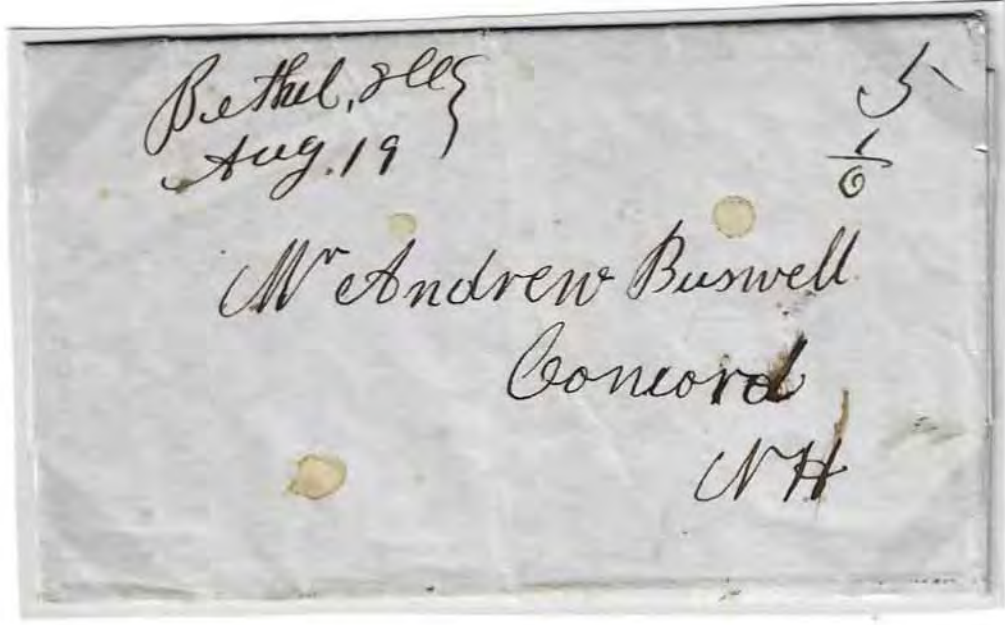 Bethel,
Aug. 19
5
Mr Andrew Buswell
Concord
NH